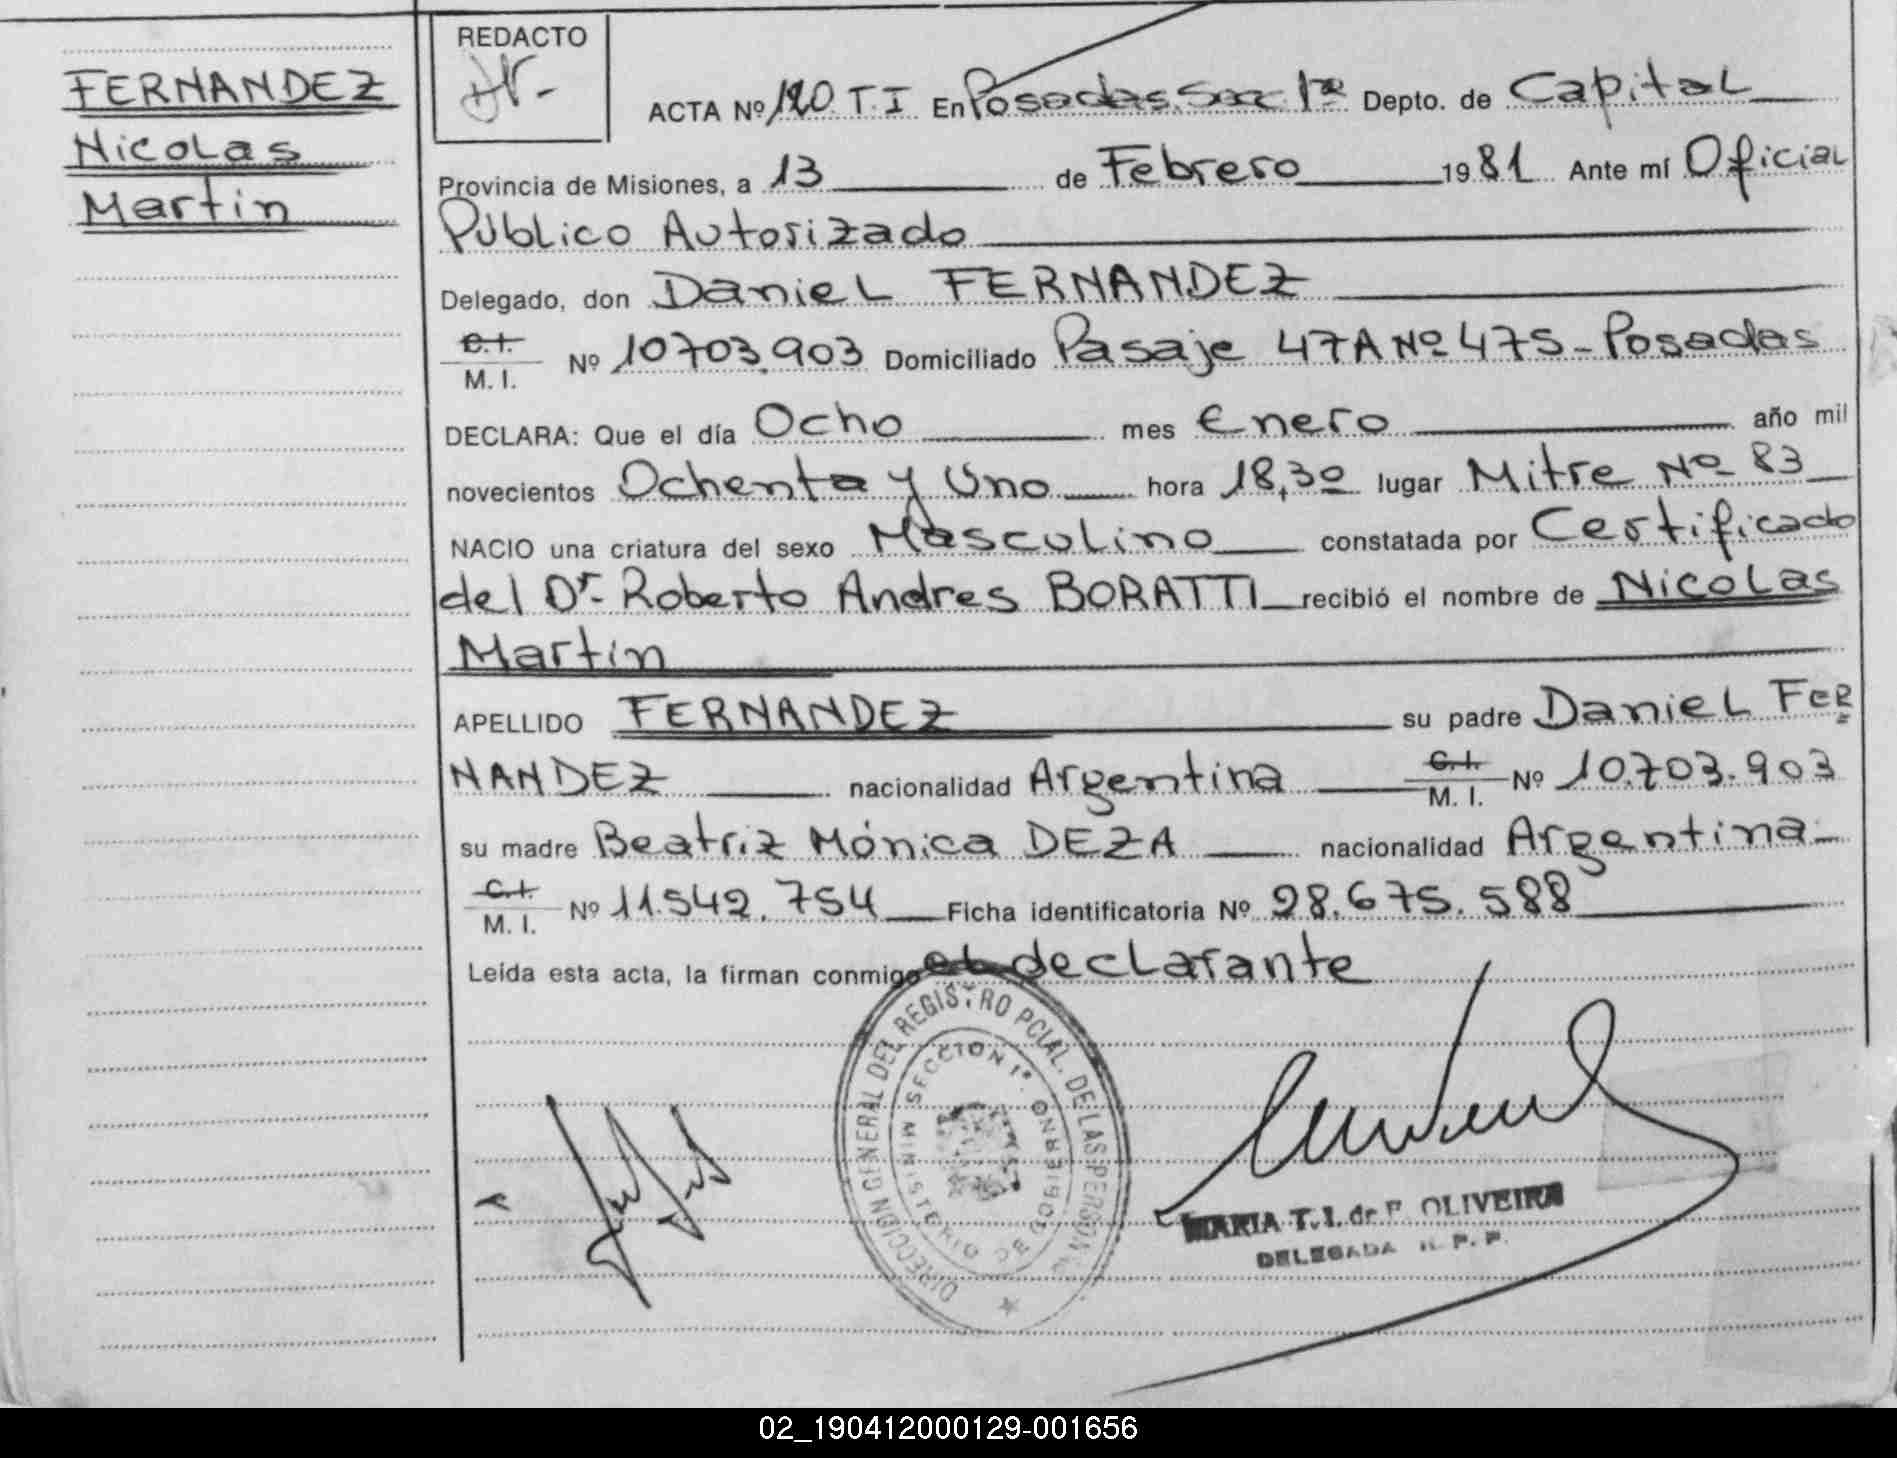 FERNANDEZ
Nicolas
Martin
REDACTO
ACTA Nº 120. T. I En Posadas. Secc 1ra Depto. de Capital
Provincia de Misiones, a 13 de Febrero 1981 Ante mí Oficial
Público Autorizado
Delegado, don Daniel FERNANDEZ
C.I. M. I. Nº 10703.903 Domiciliado Pasaje 47A Nº 475 - Posadas
DECLARA: Que el día Ocho mes Enero año mil
novecientos Ochenta y Uno hora 18,30 lugar Mitre Nº 83
NACIO una criatura del sexo Masculino constatada por Certificado
del Dr. Roberto Andres BORATTI recibió el nombre de Nicolas
Martin
APELLIDO FERNANDEZ su padre Daniel FER
NANDEZ nacionalidad Argentina C.I. M. I. Nº 10.703.903
su madre Beatriz Mónica DEZA nacionalidad Argentina
C.I. M. I. Nº 11.542.754 Ficha identificatoria Nº 28.675.588
Leída esta acta, la firman conmigo el declarante
DIRECCION GENERAL DEL REGISTRO PCIAL. DE LAS PERSONAS
SECCION 1ª
MINISTERIO DE GOBIERNO
MARIA T. I. de F. OLIVEIRA
DELEGADA R. P. P.
02_190412000129-001656